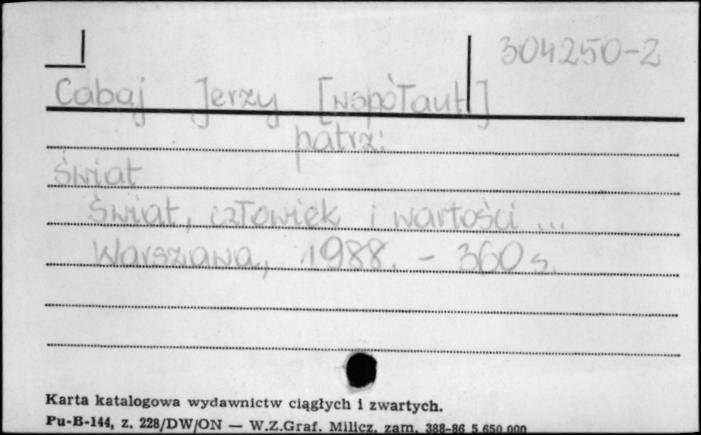 304250-2
Cabaj Jerzy [współaut.]
patrz:
Świat
Świat, człowiek i wartości ...
Warszawa, 1988. - 360 s.
Karta katalogowa wydawnictw ciągłych i zwartych.
Pu-B-144, z. 228/DW/ON — W.Z.Graf. Milicz, zam. 388-86 5.650.000